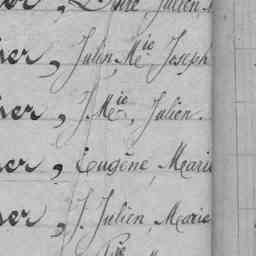 Julien
er, Julin Mie Joseph
er, J. Mie Julien.
er, Eugène, Marie
er, J. Julien, Marie